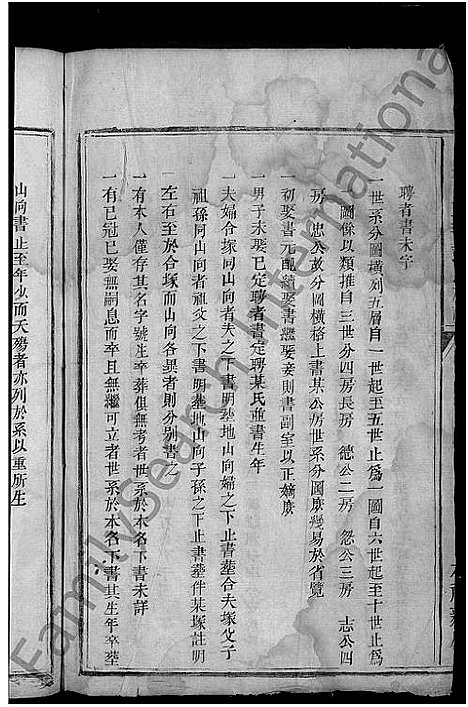 聘者書未字
一世系分圖橫列五層自一世起至五世止為一圖自六世起至十世止為
圖餘以類推自三世分四房長房 德公二房 忽公三房 志公四
房 忠公故分圖橫格上書某公房世系分圖庶幾易於省覽
一初娶書元配續娶書繼娶妾則書副室以正嫡庶
一男子未娶已定聘者書定聘某氏並書生年
一夫婦合塚同山向者夫之下書明塟地山向婦之下止書塟合夫塚父子
祖孫同山向者祖父之下書明塟地山向子孫之下止書塟件某塚註明
左右至於合塚而山向各異者則分別書之
一有本人僅存其名字號生卒葬俱無考者世系於本名下書未詳
一有已冠已娶無嗣息而卒且無繼可立者世系於本名下書其生年卒塟
山向書止至年少而夭殤者亦列於系以重所生
FamilySearch International